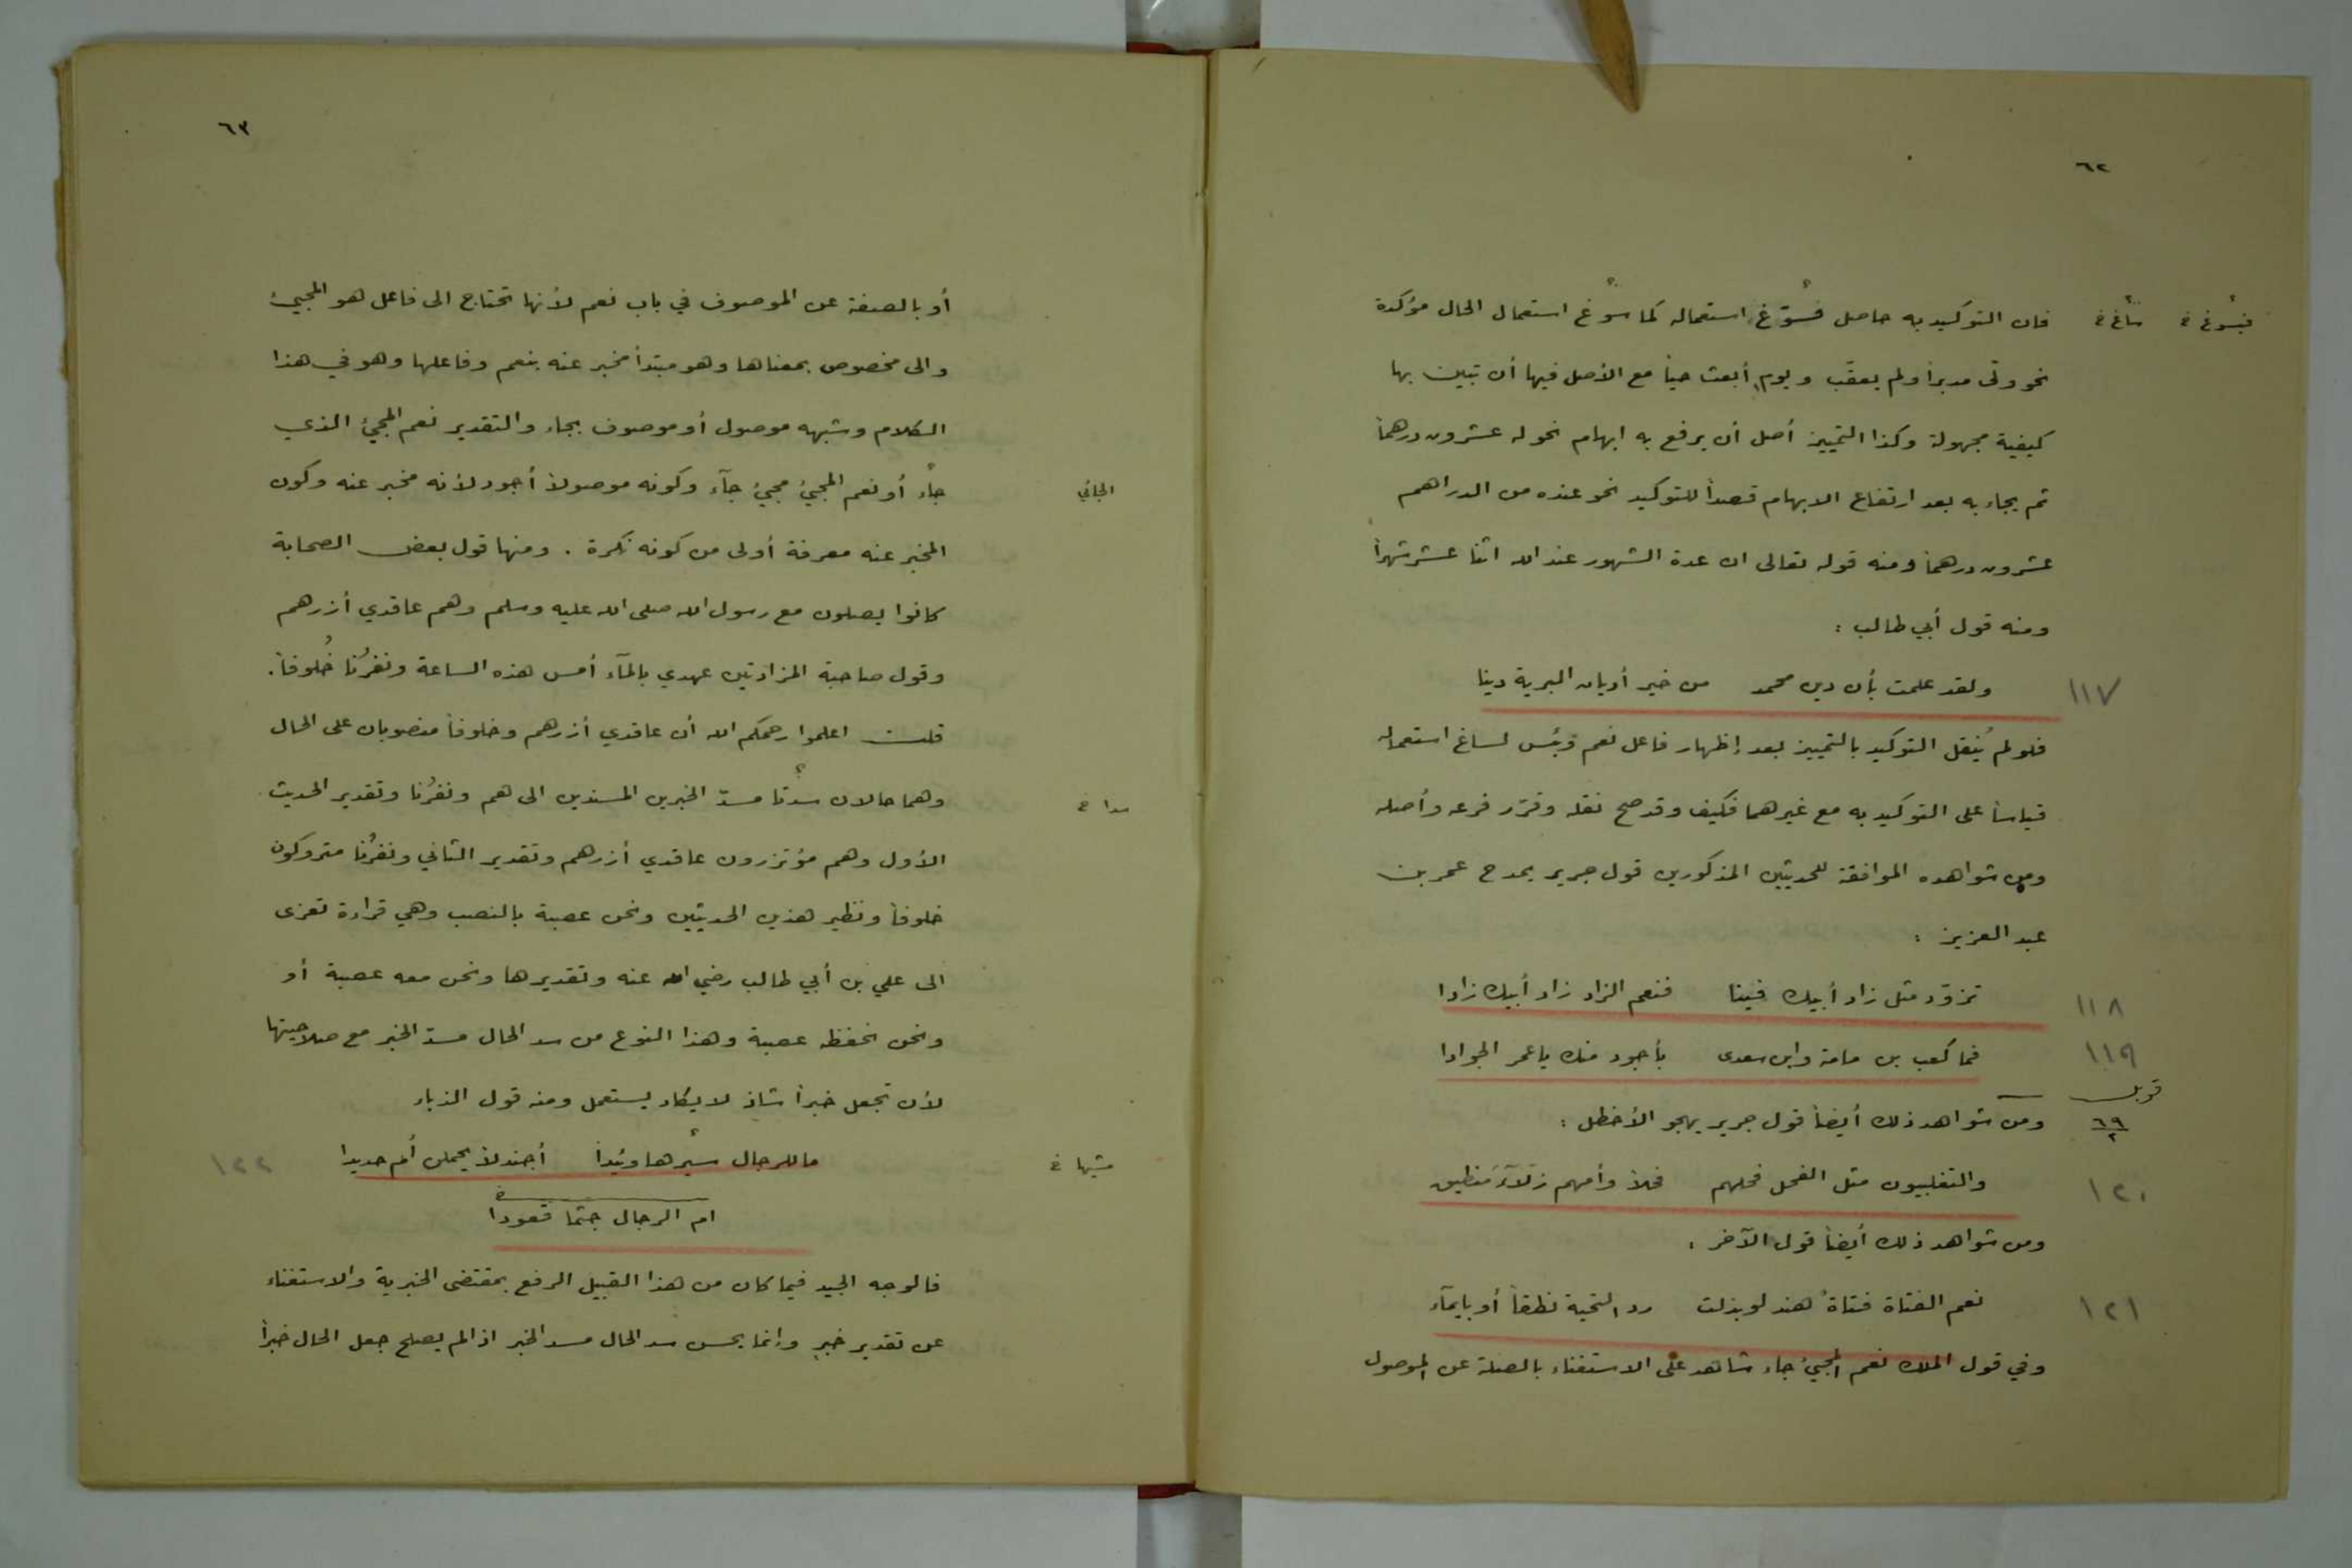 ٦٢
فان التوكيد به حاصل فسوّغ استعماله كما سوّغ استعمال الحال مؤكدة
فيسوغ خ
ساغ خ
نحو ولّى مدبراً ولم يعقب ويوم أبعث حياً مع الأصل فيها أن تبين بها
كيفية مجهولة وكذا التمييز أصل أن يرفع به ابهام نحو له عشرون درهماً
ثم يجاء به بعد ارتفاع الابهام قصداً للتوكيد نحو عنده من الدراهم
عشرون درهماً ومنه قوله تعالى ان عدة الشهور عند الله اثنا عشر شهراً
ومنه قول أبي طالب :
١١٧ ولقد علمت بأن دين محمد من خير أديان البرية دينا
فلو لم يُنقل التوكيد بالتمييز بعد إظهار فاعل نعم وبئس لساغ استعماله
قياساً على التوكيد به مع غيرهما فكيف وقد صح نقله وقرّر فرعه وأصله
ومن شواهده الموافقة للحديثين المذكورين قول جرير يمدح عمر بن
عبد العزيز :
١١٨ تزوّد مثل زاد أبيك فينا فنعم الزاد زاد أبيك زادا
١١٩ فما كعب بن مامة وابن سعدى بأجود منك يا عمر الجوادا
قوبل
٦٩
٢
ومن شواهد ذلك أيضاً قول جرير يهجو الأخطل :
١٢٠ والتغلبيون مثل الفحل فحلهم فحلاً وأمهم زلّآءُ منطيق
ومن شواهد ذلك أيضاً قول الآخر :
١٢١ نعم الفتاة فتاةً هند لو بذلت رد التحية نطقاً أو بايمآء
وفي قول الملك نعم المجيُّ جاء شاهد على الاستغناء بالصلة عن الموصول
٦٣
أو بالصفة عن الموصوف في باب نعم لأنها تحتاج الى فاعل هو المجيء
والى مخصوص بمعناها وهو مبتدأ مخبر عنه بنعم وفاعلها وهو في هذا
الكلام وشبهه موصول أو موصوف بجاء والتقدير نعم المجيُّ الذي
جاء أو نعم المجيُّ مجيُّ جآء وكونه موصولاً أجود لأنه مخبر عنه وكون
الجائي
المخبر عنه معرفة أولى من كونه نكرة . ومنها قول بعض الصحابة
كانوا يصلون مع رسول الله صلى الله عليه وسلم وهم عاقدي أزرهم
وقول صاحبة المزادتين عهدي بالمآء أمس هذه الساعة ونفرُنا خُلوفاً.
قلت اعلموا رحمكم الله أن عاقدي أزرهم وخلوفاً منصوبان على الحال
وهما حالان سدتا مسدّ الخبرين المسندين الى هم ونفرُنا وتقدير الحديث
سدا خ
الأول وهم مؤتزرون عاقدي أزرهم وتقدير الثاني ونفرُنا متروكون
خلوفاً ونظير هذين الحديثين ونحن عصبة بالنصب وهي قراءة تعزى
الى علي بن أبي طالب رضي الله عنه وتقديرها ونحن معه عصبة أو
ونحن نحفظه عصبة وهذا النوع من سد الحال مسدّ الخبر مع صلاحيتها
لأن تجعل خبراً شاذ لا يكاد يستعمل ومنه قول الزباء
مشيها خ
ما للرجال سيرها وئيداً أجندلاً يحملن أم حديدا ١٢٢
ام الرجال جثما قعودا
فالوجه الجيد فيما كان من هذا القبيل الرفع بمقتضى الخبرية والاستغناء
عن تقدير خبر وإنما يحسن سد الحال مسد الخبر اذا لم يصلح جعل الحال خبراً